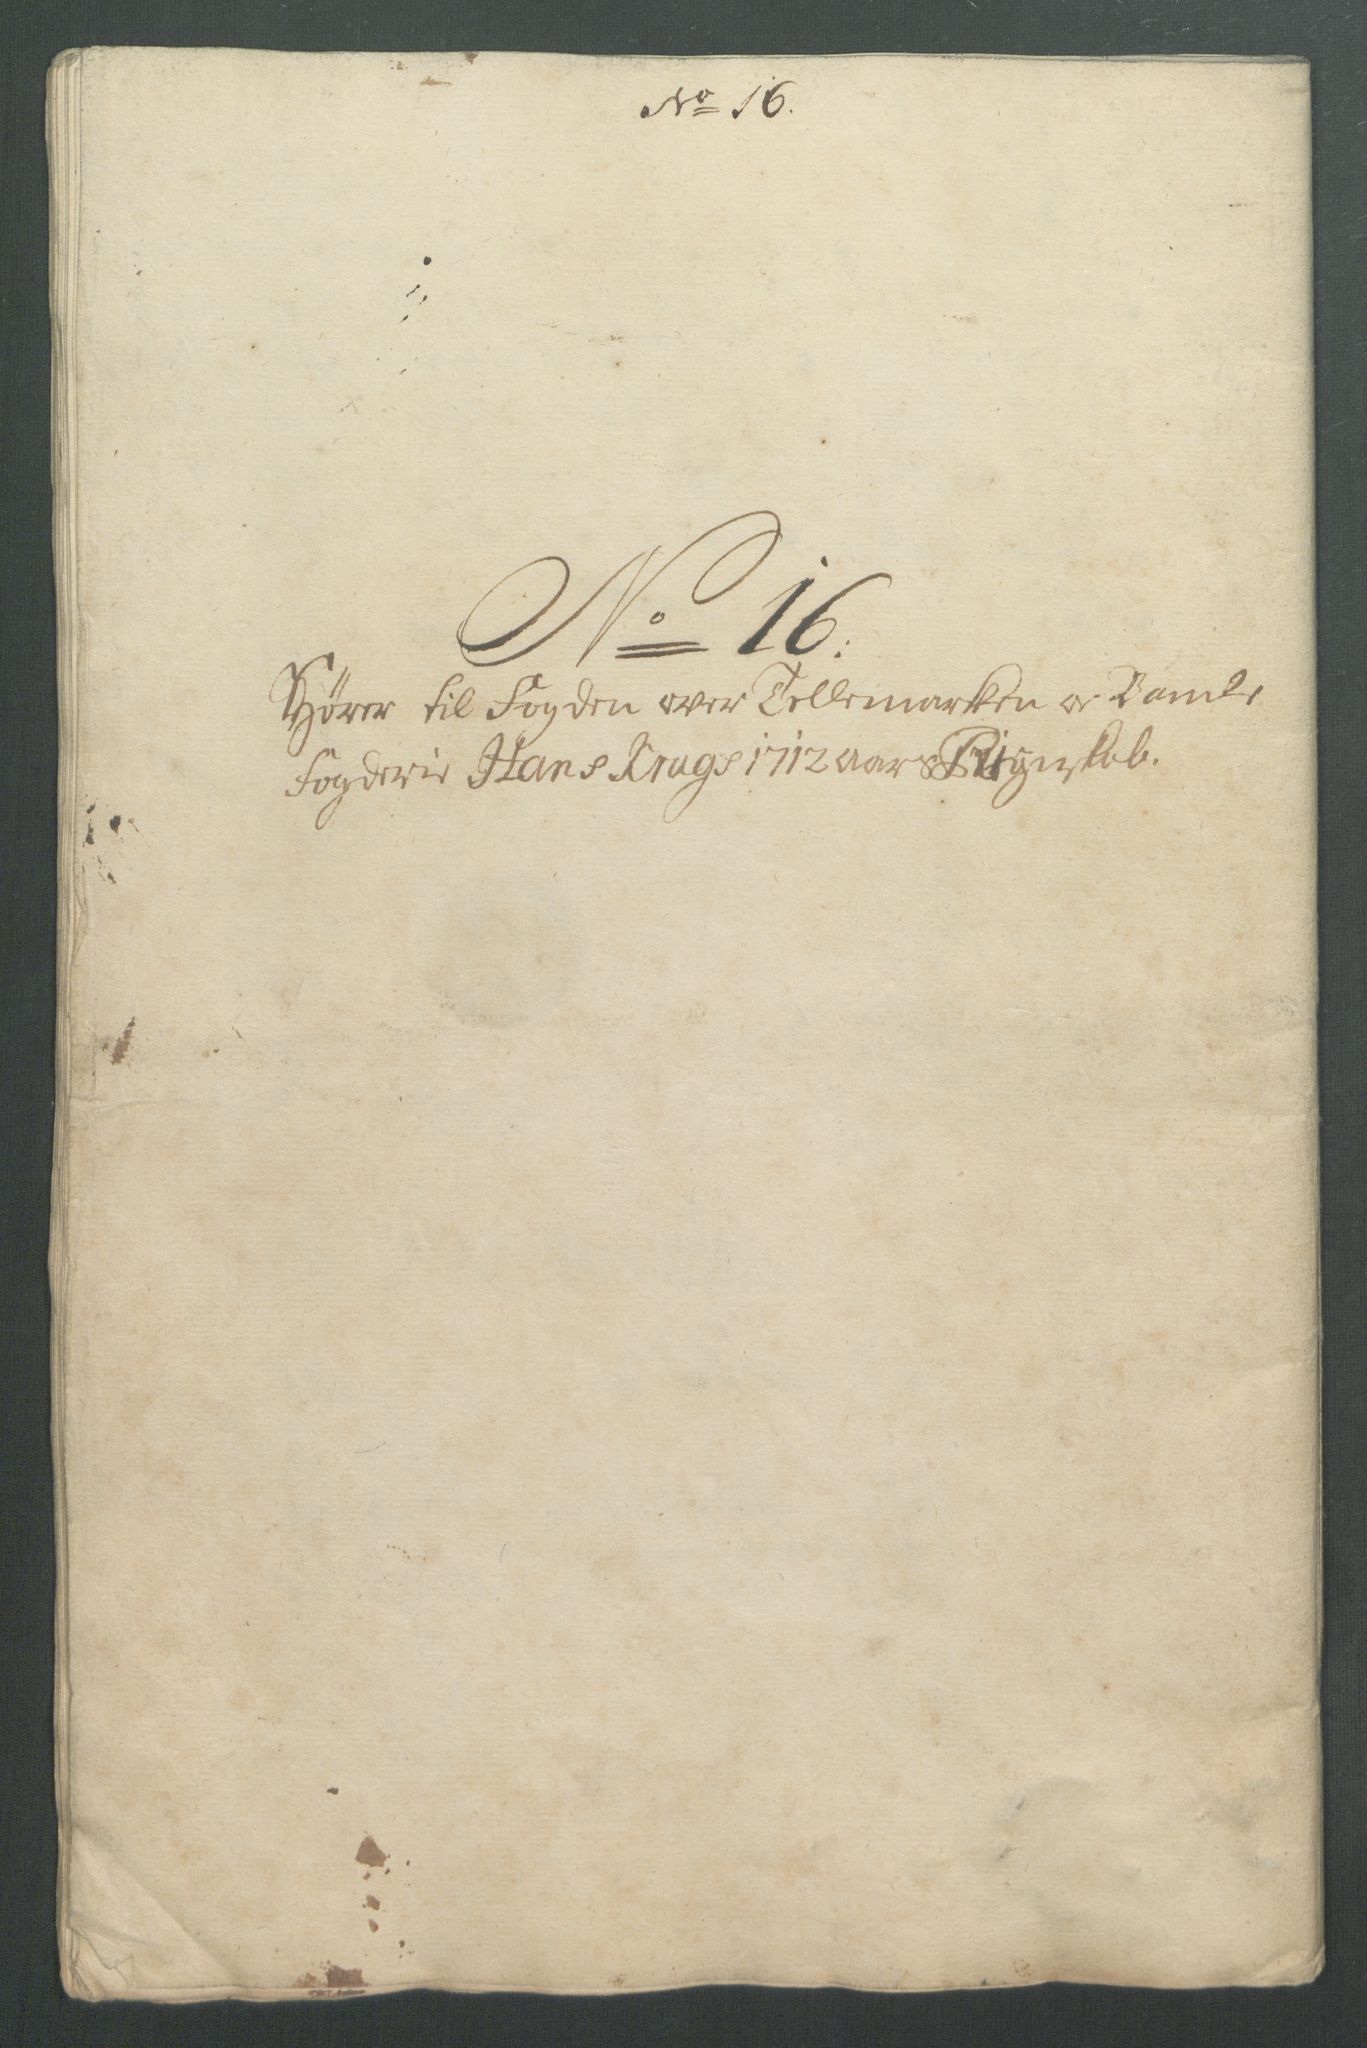 No 16.
No 16.
Hører til Fogden over Tellemarken oc Bamle
Fogderie Hans Krags 1712 aars Regnskab.